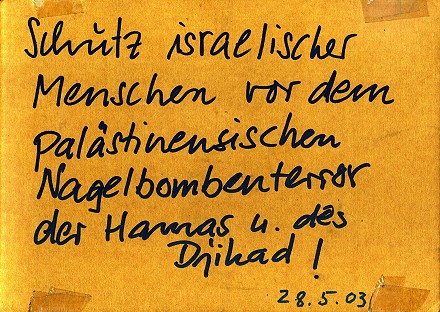 Schutz israelischer
Menschen vor dem
palästinensischen
Nagelbombenterror
der Hamas u. des
Djihad!
28.5.03